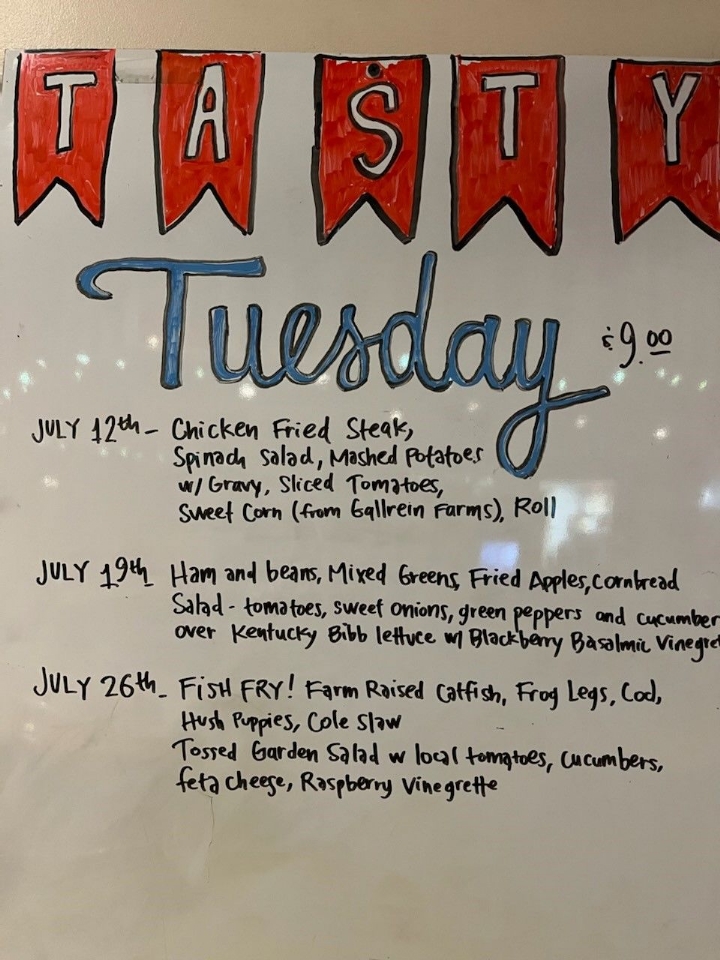 TASTY
Tuesday $9.00
JULY 12th - Chicken Fried Steak,
Spinach Salad, Mashed Potatoes
w/ Gravy, Sliced Tomatoes,
Sweet Corn (from Gallrein Farms), Roll
JULY 19th Ham and beans, Mixed Greens, Fried Apples, cornbread
Salad - tomatoes, sweet onions, green peppers and cucumber
over Kentucky Bibb lettuce w/ Blackberry Basalmic Vinegret
JULY 26th - FISH FRY! Farm Raised Catfish, Frog Legs, Cod,
Hush Puppies, Cole Slaw
Tossed Garden Salad w local tomatoes, cucumbers,
feta cheese, Raspberry Vinegrette